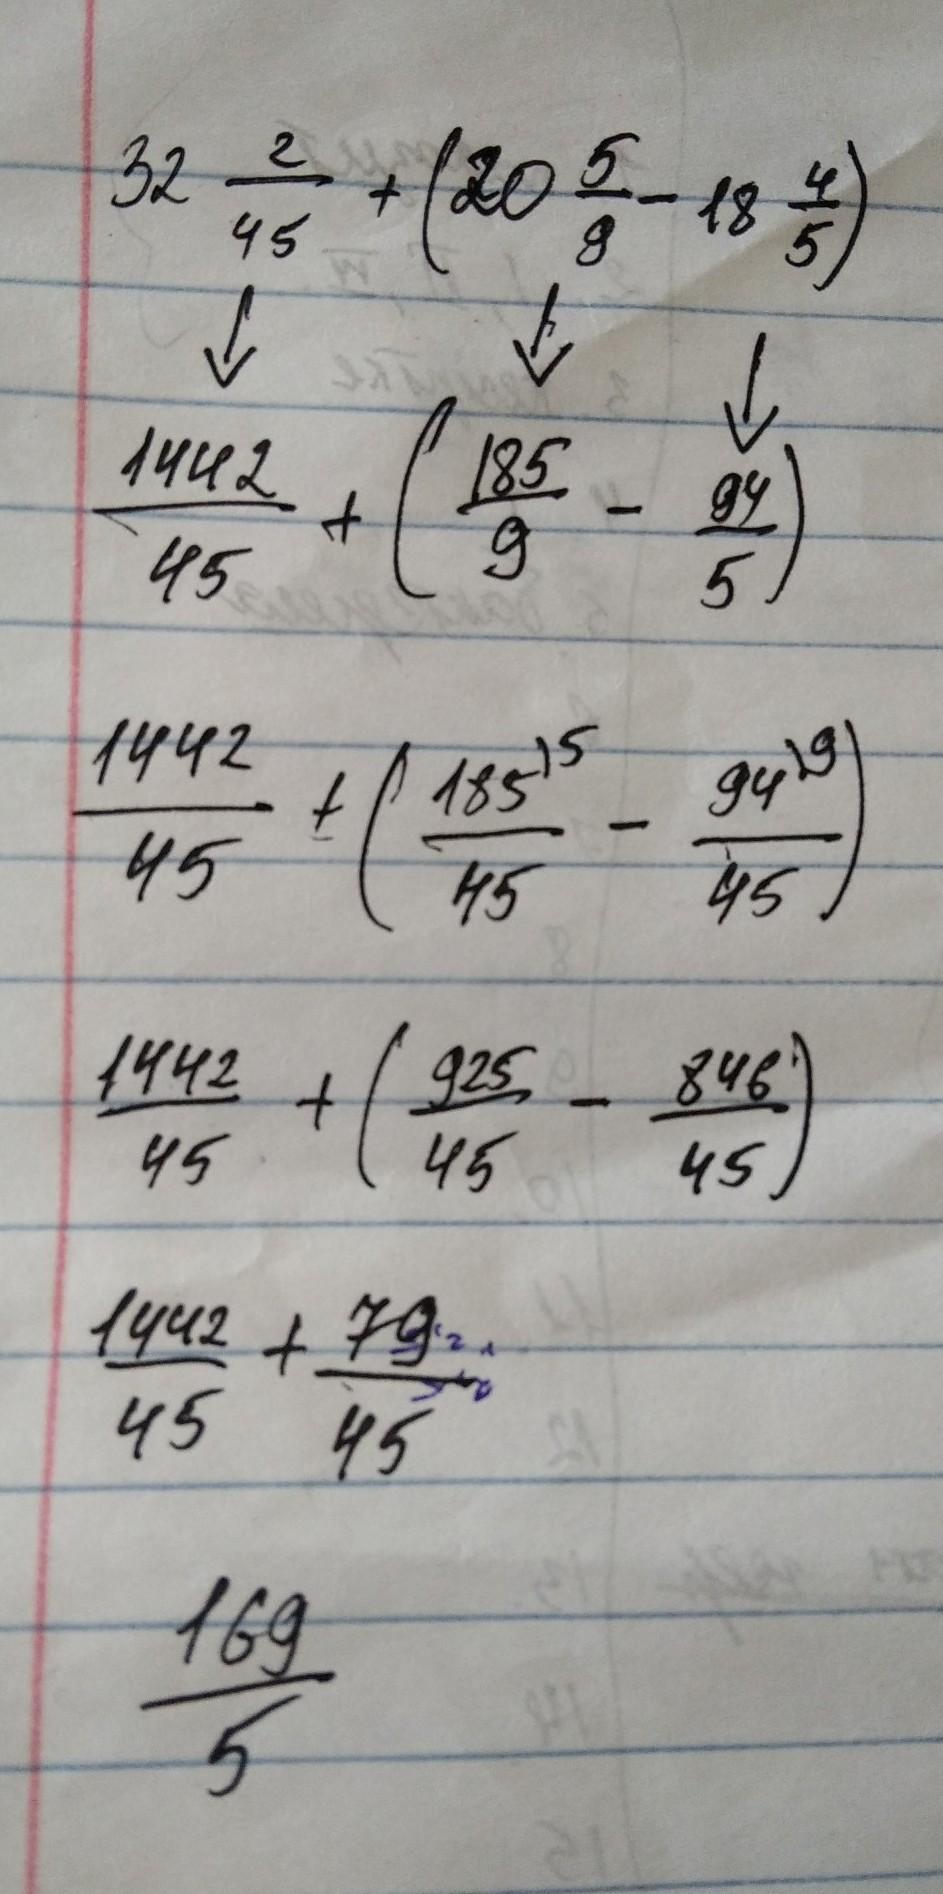 32 2/45 + (20 5/9 - 18 4/5)
↓ ↓ ↓
1442/45 + (185/9 - 94/5)
1442/45 + (185⁾⁵/45 - 94⁾⁹/45)
1442/45 + (925/45 - 846/45)
1442/45 + 79/45
169/5